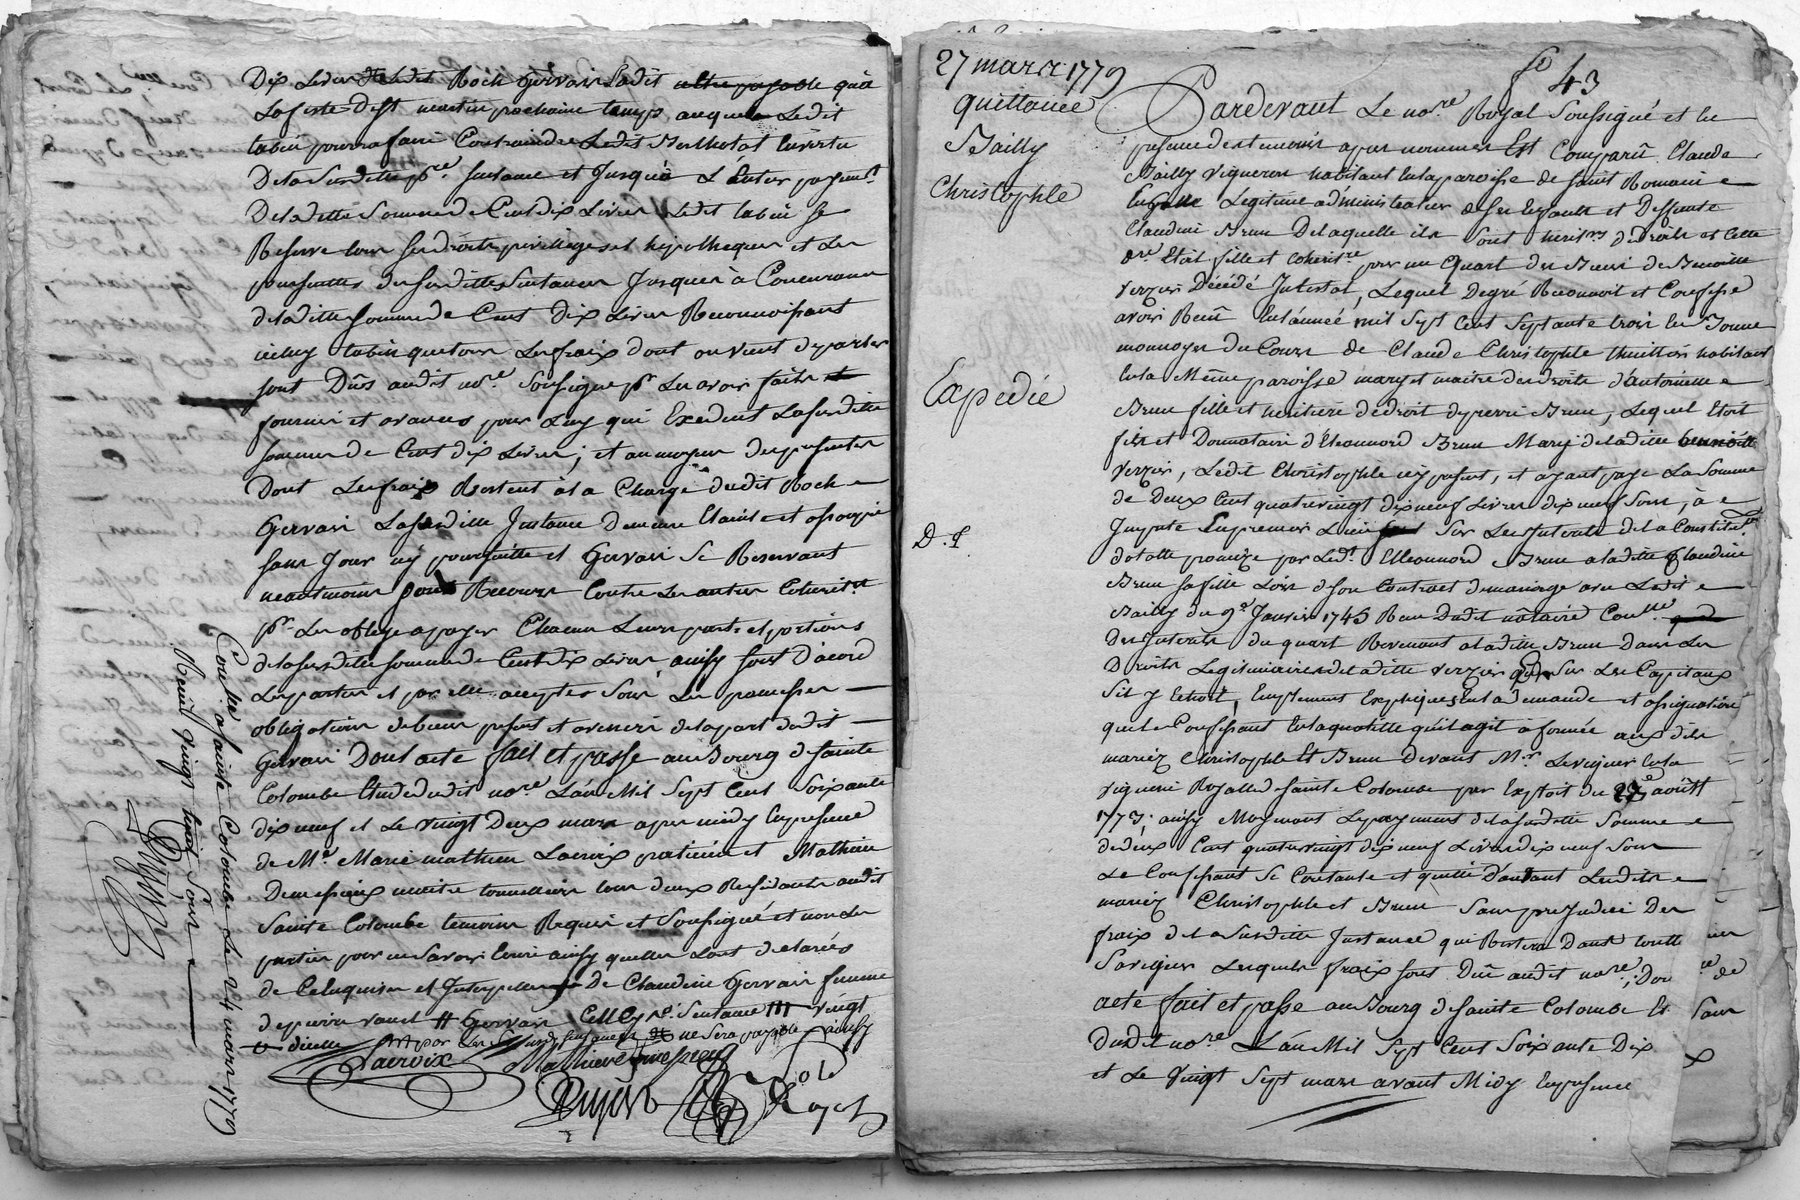 Dix Livres ledit Roch Gervais ladit payable qu'à
La feste de St martin prochaine temps auquel Ledit
tabin pourra faire Contraindre Ledit Bertholat En vertu
De la Susditte sentance et Jusqu'à L'Entier payemt
De laditte Somme de Cent dix Livres Ledit tabin se
Reserve tous ses droits privillèges et hypotheques et Les
poursuittes des susdittes Sentances Jusques à Concurance
de laditte somme de Cent Dix Livres Reconnoissant
iceluy tabin que tous Les fraix dont on vient de parler
sont Dûs audit nore Soussigné pr Les avoir faits et
fournis et avancés pour Luy qui Excedent La susditte
somme de Cent dix Livres, et au moyen des presentes
Dont Les fraix Restent à la Charge dudit Roch
Gervais La susditte Instance Demeure Etainte et assoupie
sans Jour ny poursuitte et Gervais se Reservant
neantmoins son Recours Contre Les autres Coherit.rs
pr Les obliger a payer Chacun Leurs parts et portions
de la susditte somme de Cent dix Livres ainsy sont D'acord
Les parties et par elles accepté Sous Les promesses
obligations de biens presents et avenirs de la part dudit
Gervais Dont acte fait et passé au Bourg de Sainte
Colombe Etude dudit nore L'an Mil Sept Cent Soixante
dix neuf et Le vingt Deux mars apres midy En presence
de Me Marie mathieu Lacroix praticien et Mathieu
maitre tonnellier tous deux Residants audit
Sainte Colombe temoins Requis et Soussignés et non Les
parties pour ne Savoir Ecrire ainsy quelles L'ont declarées
de Ce Enquises et Interpellées De Claudine Gervais femme
Gervais Sentance vingt
ne Sera payable ainsy
Lacroix
Royer
Conlé a Sainte Colombe Le 24 mars 1779
Reçu vingt Sous
27 mars 1779
quittance
Bailly
Christophle
Expediée
D. I.
fo 43
Pardevant Le nore Royal Soussigné et En
presence des temoins apres nommés Est Comparû Claude
Bailly Vigneron habitant En la paroisse de Saint Romain
En Legitime administrateur de ses Enfants et Deffunte
Claudine Brun De laquelle ils sont heritiers de droits et Celle
Etoit fille et coheritre pour un Quart des Biens de Benoitte
Verzier Décédé Intestat, Lequel De gré Reconnoit et Confesse
avoir Reçû En l'année mil Sept Cent Septante trois En Bonne
monnoyes du Cours de Claude Christophle habitant
En la Même paroisse mary et maitre des droits d'Antoinette
Brun fille et heritiere de droit de pierre Brun, Lequel Etoit
fils et Donnataire d'Eleonnord Brun Mary de laditte benoitte
Verzier, Ledit Christophle icy present, et ayant payé La Somme
de Deux Cent quatre vingt dix neuf Livres dix neuf Sous, à
Imputé En premier Lieu Sur Les Interets de la Constituton
dotalle promise par Ledt Elleonnord Brun a laditte Claudine
Brun sa fille Lors de son Contract de mariage avec Ledit
Bailly du 9e Janvier 1745 Reçu Dudit nôtaire
Des Interets du quart Revenant a laditte Brun Dans Les
Droits Legitimaires de laditte Verzier Sur Les Capitaux
Sil y Echoit, En la demande et assignation
que Le Confessant En la quallité qu'il agit à formée aux dits
mariéz Christophle Et Brun Devant Mr Leviguier En la
viguerie Royalle de Sainte Colombe par Exploit du août
1773; ainsy Moyenant Le payement de la susditte Somme
de deux Cent quatre vingt dix neuf Livres dix neuf Sous
Le Confessant Se Contente et quitte D'autant Lesdits
mariéz Christophle et Brun Sans prejudice Des
fraix de La Susditte Instance qui Restera Dans toutte
Sa vigueur Lesquels fraix sont Dûs audit nore, Dont
acte fait et passé au Bourg de Sainte Colombe Et
Dudit nore L'an Mil Sept Cent Soixante Dix
et Le Vingt Sept mars avant Midy En presence